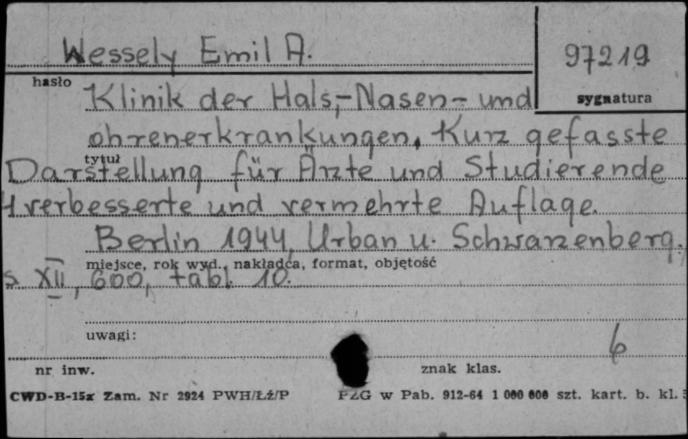 Wessely Emil A.
97219
hasło
sygnatura
Klinik der Hals,-Nasen- und
ohrenerkrankungen, Kurz gefasste
tytuł
Darstellung für Ärzte und Studierende
4 verbesserte und vermehrte Auflage.
Berlin 1944, Urban u. Schwarzenberg.
miejsce, rok wyd., nakładca, format, objętość
s XII, 600, tabl. 10.
uwagi:
6
nr inw.
znak klas.
CWD-B-15x Zam. Nr 2924 PWH/Łź/P
PZG w Pab. 912-64 1 000 000 szt. kart. b. kl.